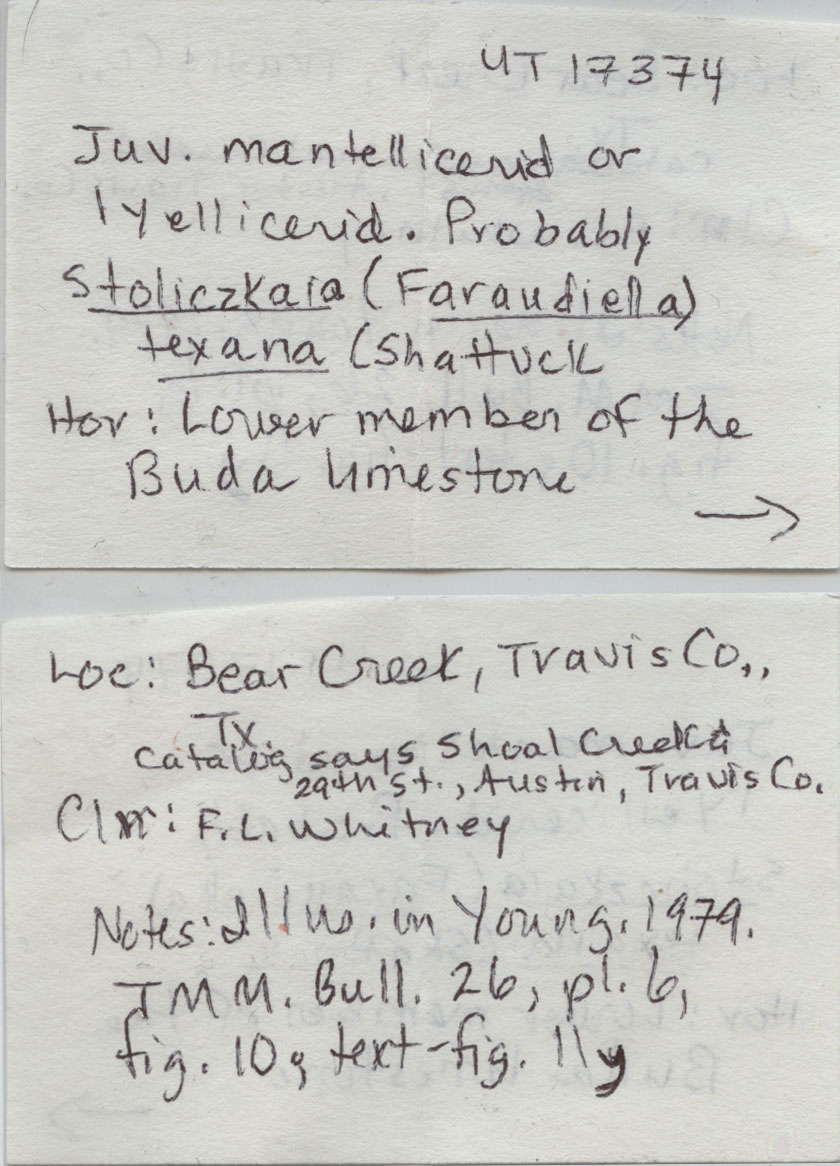 UT 17374
Juv. mantellicerid or
lyellicerid. Probably
Stoliczkaia (Faraudiella)
texana (Shattuck
Hor: Lower member of the
Buda limestone
→
Loc: Bear Creek, Travis Co.,
Tx.
Catalog says Shoal Creek &
29th St., Austin, Travis Co.
Clr: F.L. Whitney
Notes: Illus. in Young. 1979.
TMM. Bull. 26, pl. 6,
fig. 10, text-fig. 11y